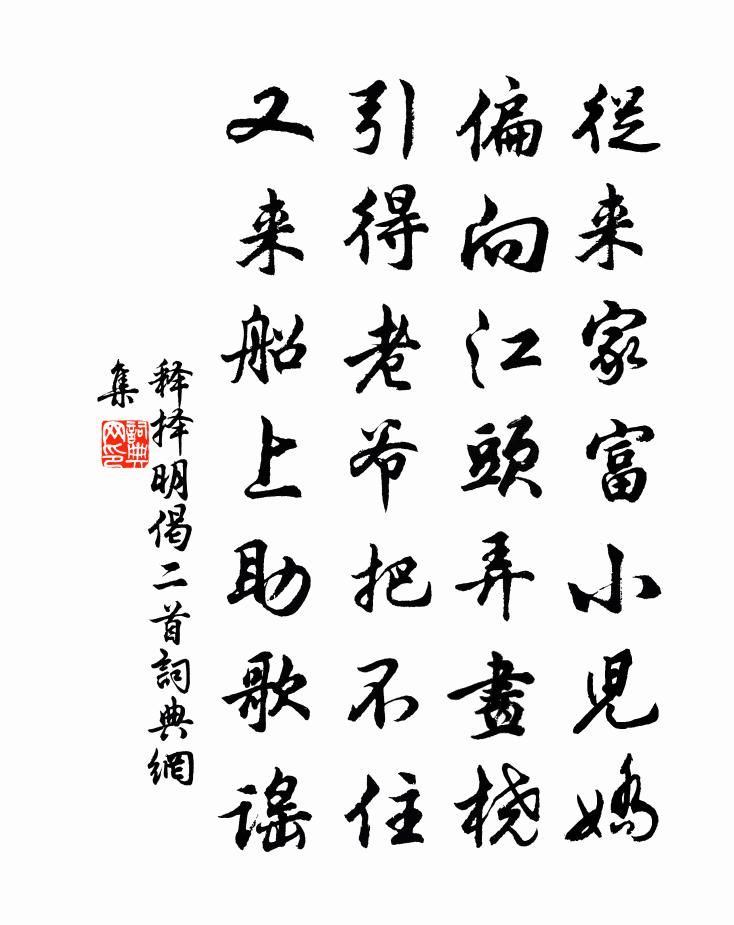 從来家富小児嬌
偏向江頭弄畫桡
引得老爷把不住
又来船上助歌謡
释择明偈二首詞典網
集
詞典
网印